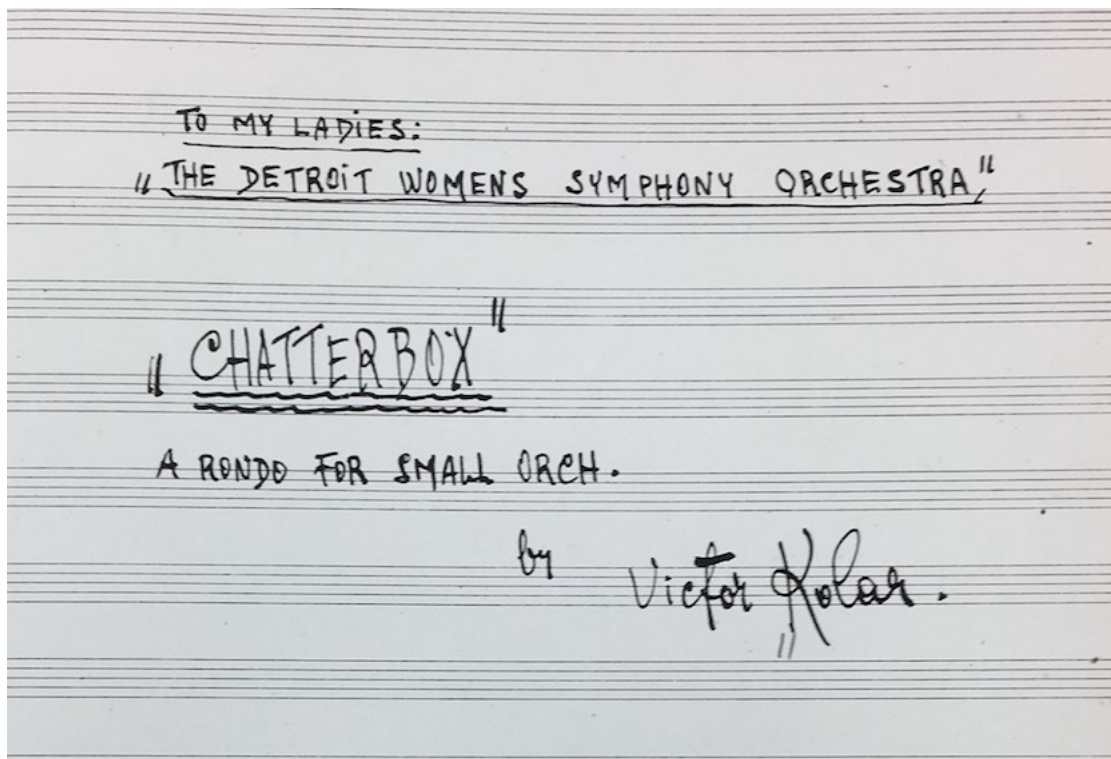 TO MY LADIES:
"THE DETROIT WOMENS SYMPHONY ORCHESTRA"
"CHATTERBOX"
A RONDO FOR SMALL ORCH.
by Victor Kolar.